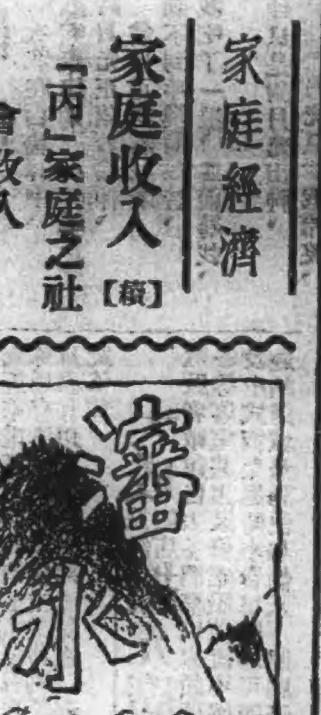 家庭經濟
家庭收入【續】
「丙」家庭之社
會收入
水